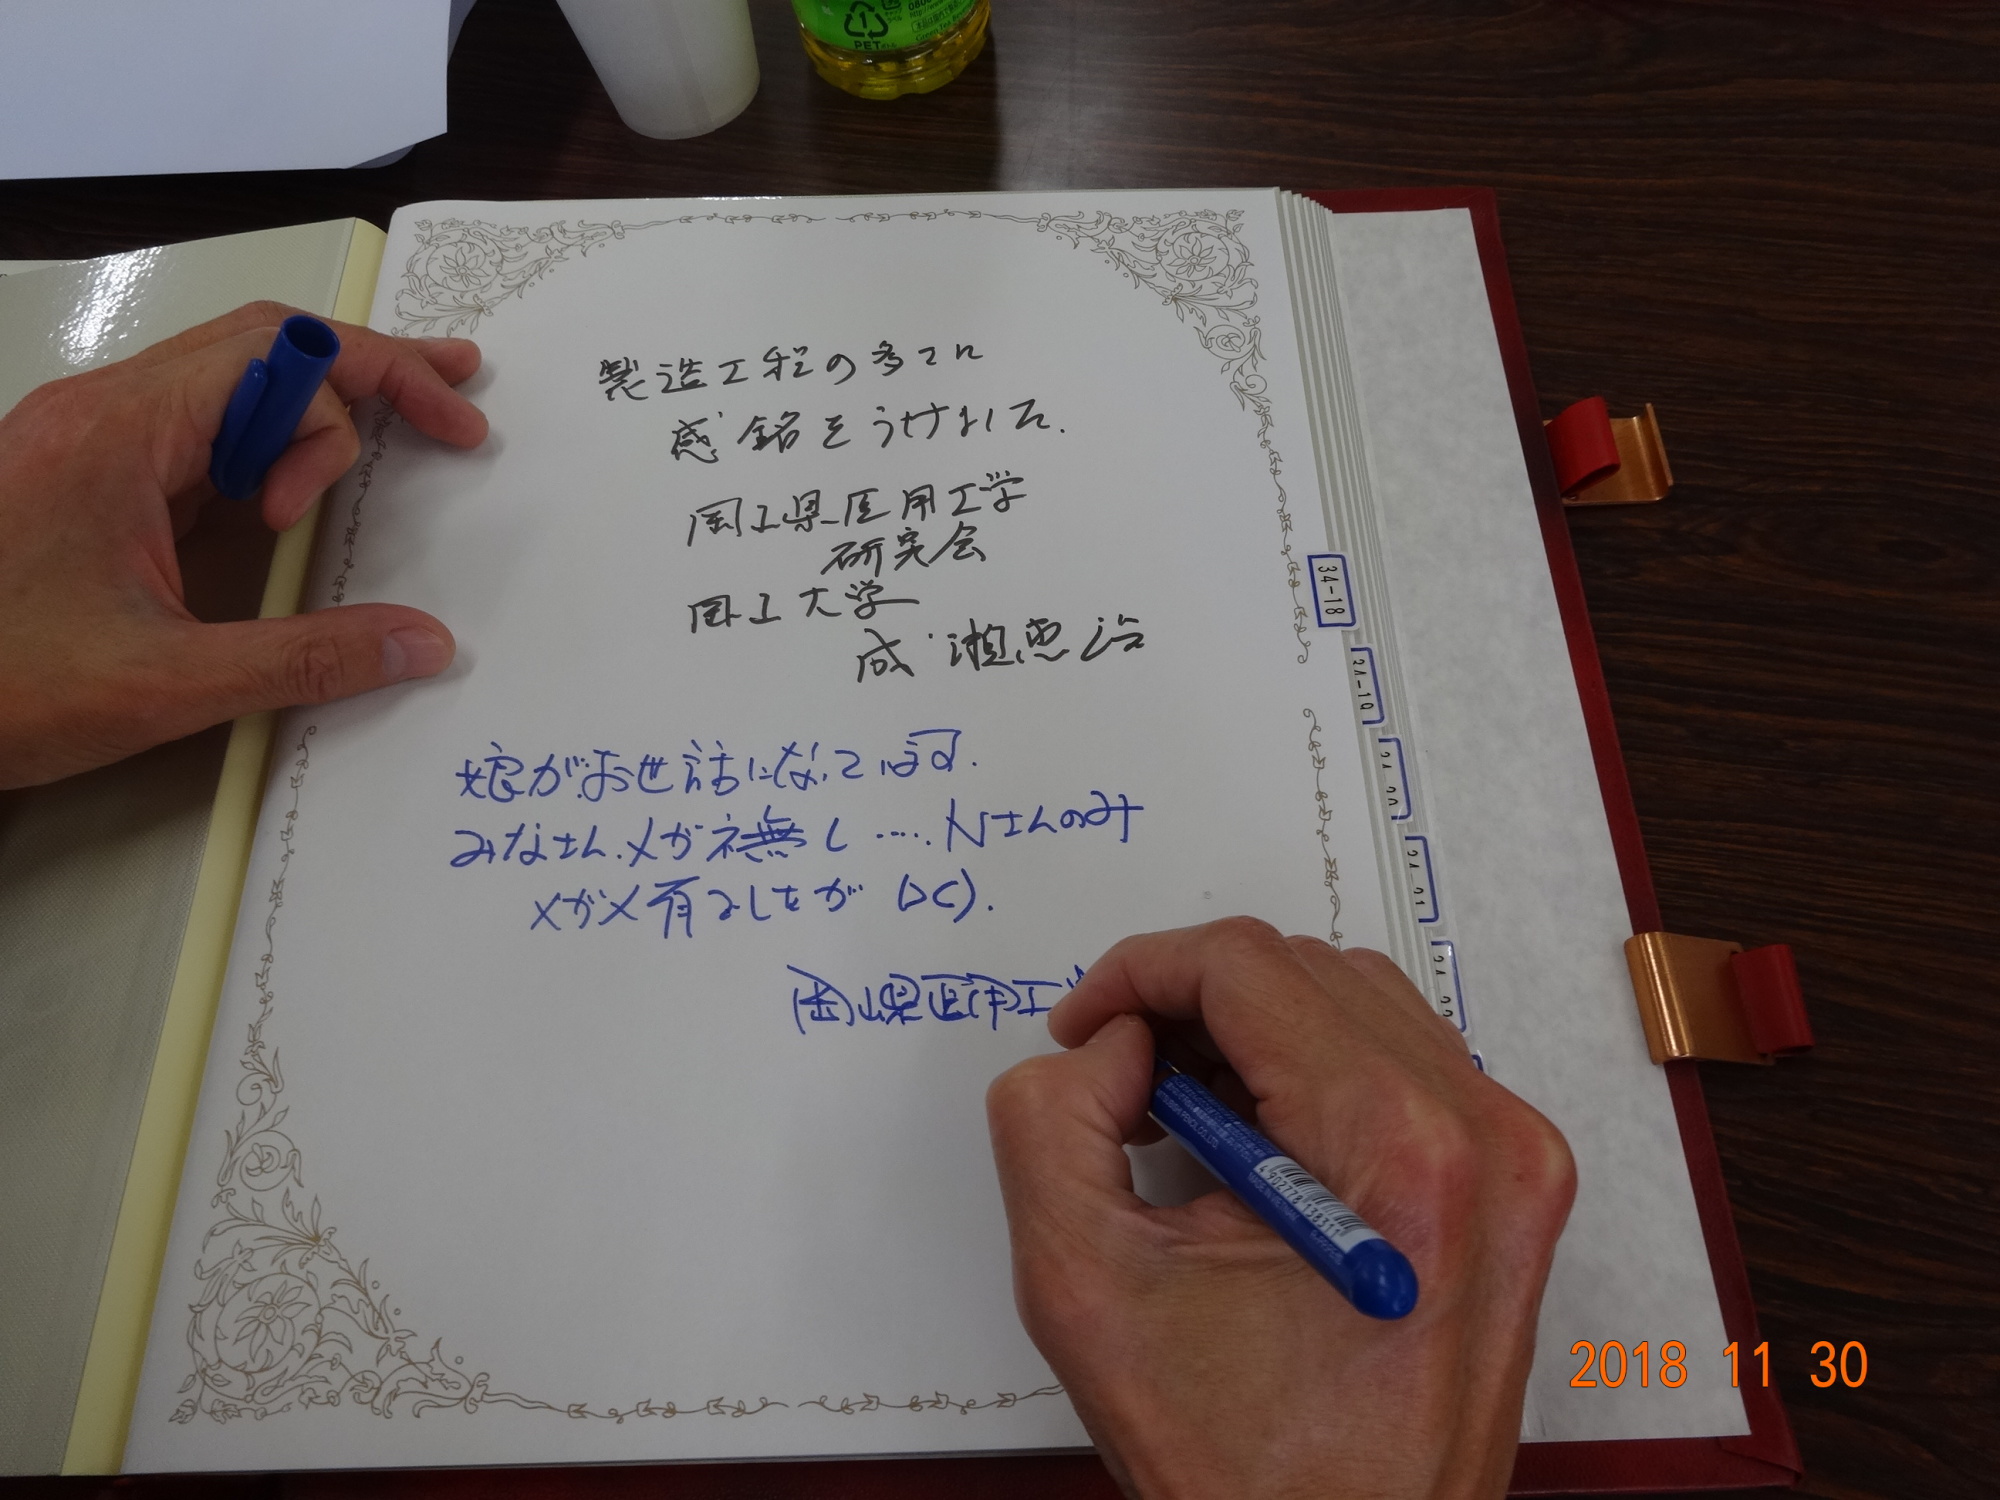 PET
製造工程の多さに
感銘をうけました.
岡山県医用工学
研究会
岡山大学
成瀬恵治
34-18
娘がお世話になってます.
みなさんメガネ無し‥‥Nさんのみ
メガネ有りましたが
岡山県医用工学
4 902778 138311
2018 11 30